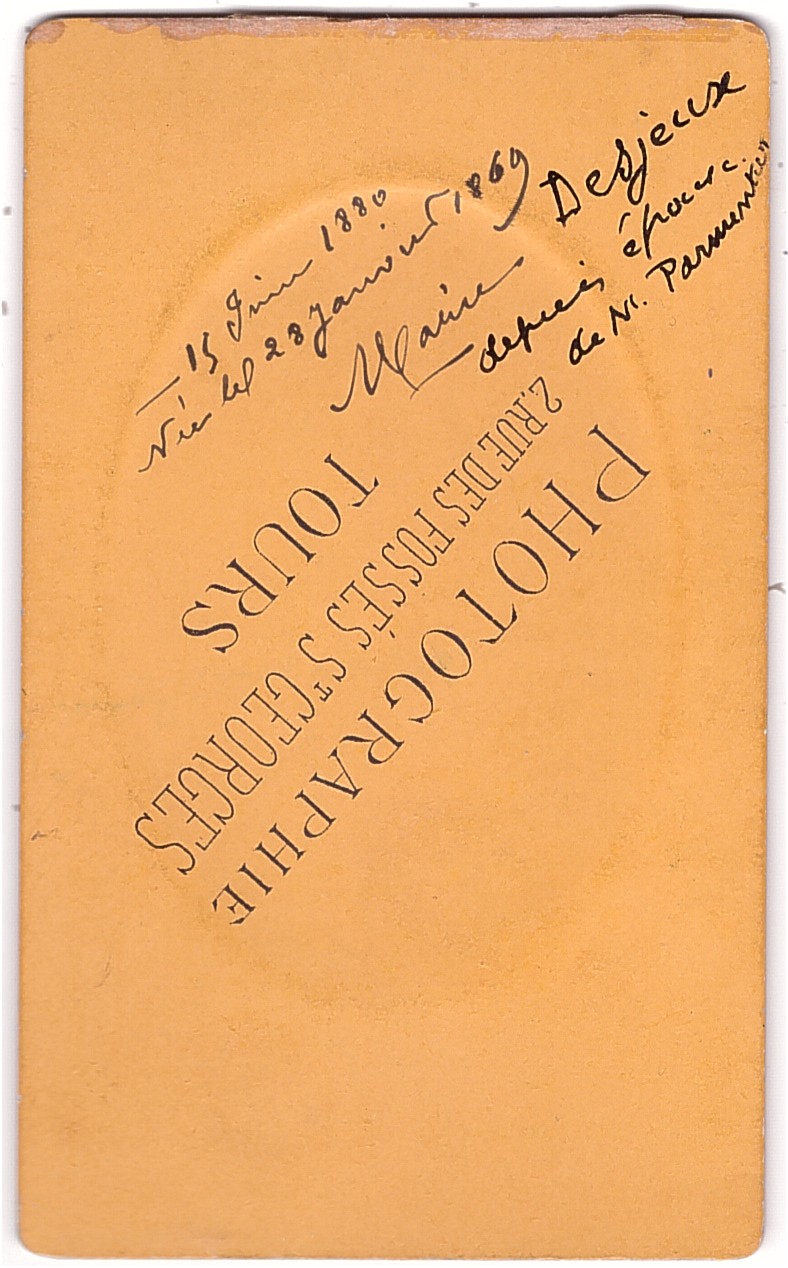 15 Juin 1880
Née le 28 Janvier 1869
Marie Desjeux
depuis épouse
de M. Parmentier
PHOTOGRAPHIE
2, RUE DES FOSSÉS ST GEORGES
TOURS